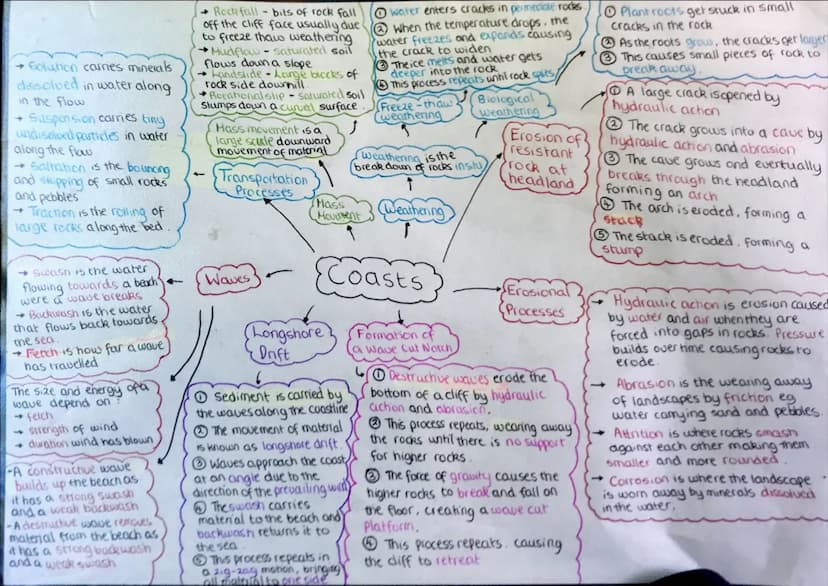 Coasts
Transportation
Processes
→ Solution carries minerals
dissolved in water along
in the flow
→ Suspension carries tiny
undissolved particles in water
along the flow
→ Saltation is the bouncing
and skipping of small rocks
and pebbles
→ Traction is the rolling of
large rocks along the bed.
Mass
Movement
Mass movement is a
large scale downward
movement of material
→ Rockfall - bits of rock fall
off the cliff face usually due
to freeze thaw weathering
→ Mudflow - saturated soil
flows down a slope
→ Landslide - Large blocks of
rock slide downhill
→ Rotational slip - saturated soil
slumps down a curved surface.
Weathering
Weathering is the
break down of rocks insitu
Freeze-thaw
weathering
① Water enters cracks in permeable rocks
② When the temperature drops, the
water freezes and expands causing
the crack to widen
③ The ice melts and water gets
deeper into the rock
④ This process repeats until rock splits
Biological
weathering
① Plant roots get stuck in small
cracks in the rock
② As the roots grow, the cracks get larger
③ This causes small pieces of rock to
break away.
Erosion of
resistant
rock at
headland
① A large crack is opened by
hydraulic action
② The crack grows into a cave by
hydraulic action and abrasion
③ The cave grows and eventually
breaks through the headland
forming an arch
④ The arch is eroded, forming a
stack
⑤ The stack is eroded, forming a
stump
Erosional
Processes
→ Hydraulic action is erosion caused
by water and air when they are
forced into gaps in rocks. Pressure
builds over time causing rocks to
erode.
→ Abrasion is the wearing away
of landscapes by friction eg
water carrying sand and pebbles.
→ Attrition is where rocks smash
against each other making them
smaller and more rounded.
→ Corrosion is where the landscape
is worn away by minerals dissolved
in the water.
Formation of
a Wave Cut Notch
① Destructive waves erode the
bottom of a cliff by hydraulic
action and abrasion.
② This process repeats, wearing away
the rocks until there is no support
for higher rocks.
③ The force of gravity causes the
higher rocks to break and fall on
the floor, creating a wave cut
platform.
④ This process repeats, causing
the cliff to retreat
Longshore
Drift
① Sediment is carried by
the waves along the coastline
② The movement of material
is known as longshore drift.
③ Waves approach the coast
at an angle due to the
direction of the prevailing wind
④ The swash carries
material to the beach and
backwash returns it to
the sea.
⑤ This process repeats in
a zig-zag motion, bringing
all material to one side
Waves
→ Swash is the water
flowing towards a beach
were a wave breaks
→ Backwash is the water
that flows back towards
the sea.
→ Fetch is how far a wave
has travelled
The size and energy of a
wave depend on:
→ fetch
→ strength of wind
→ duration wind has blown
-A constructive wave
builds up the beach as
it has a strong swash
and a weak backwash
-A destructive wave removes
material from the beach as
it has a strong backwash
and a weak swash